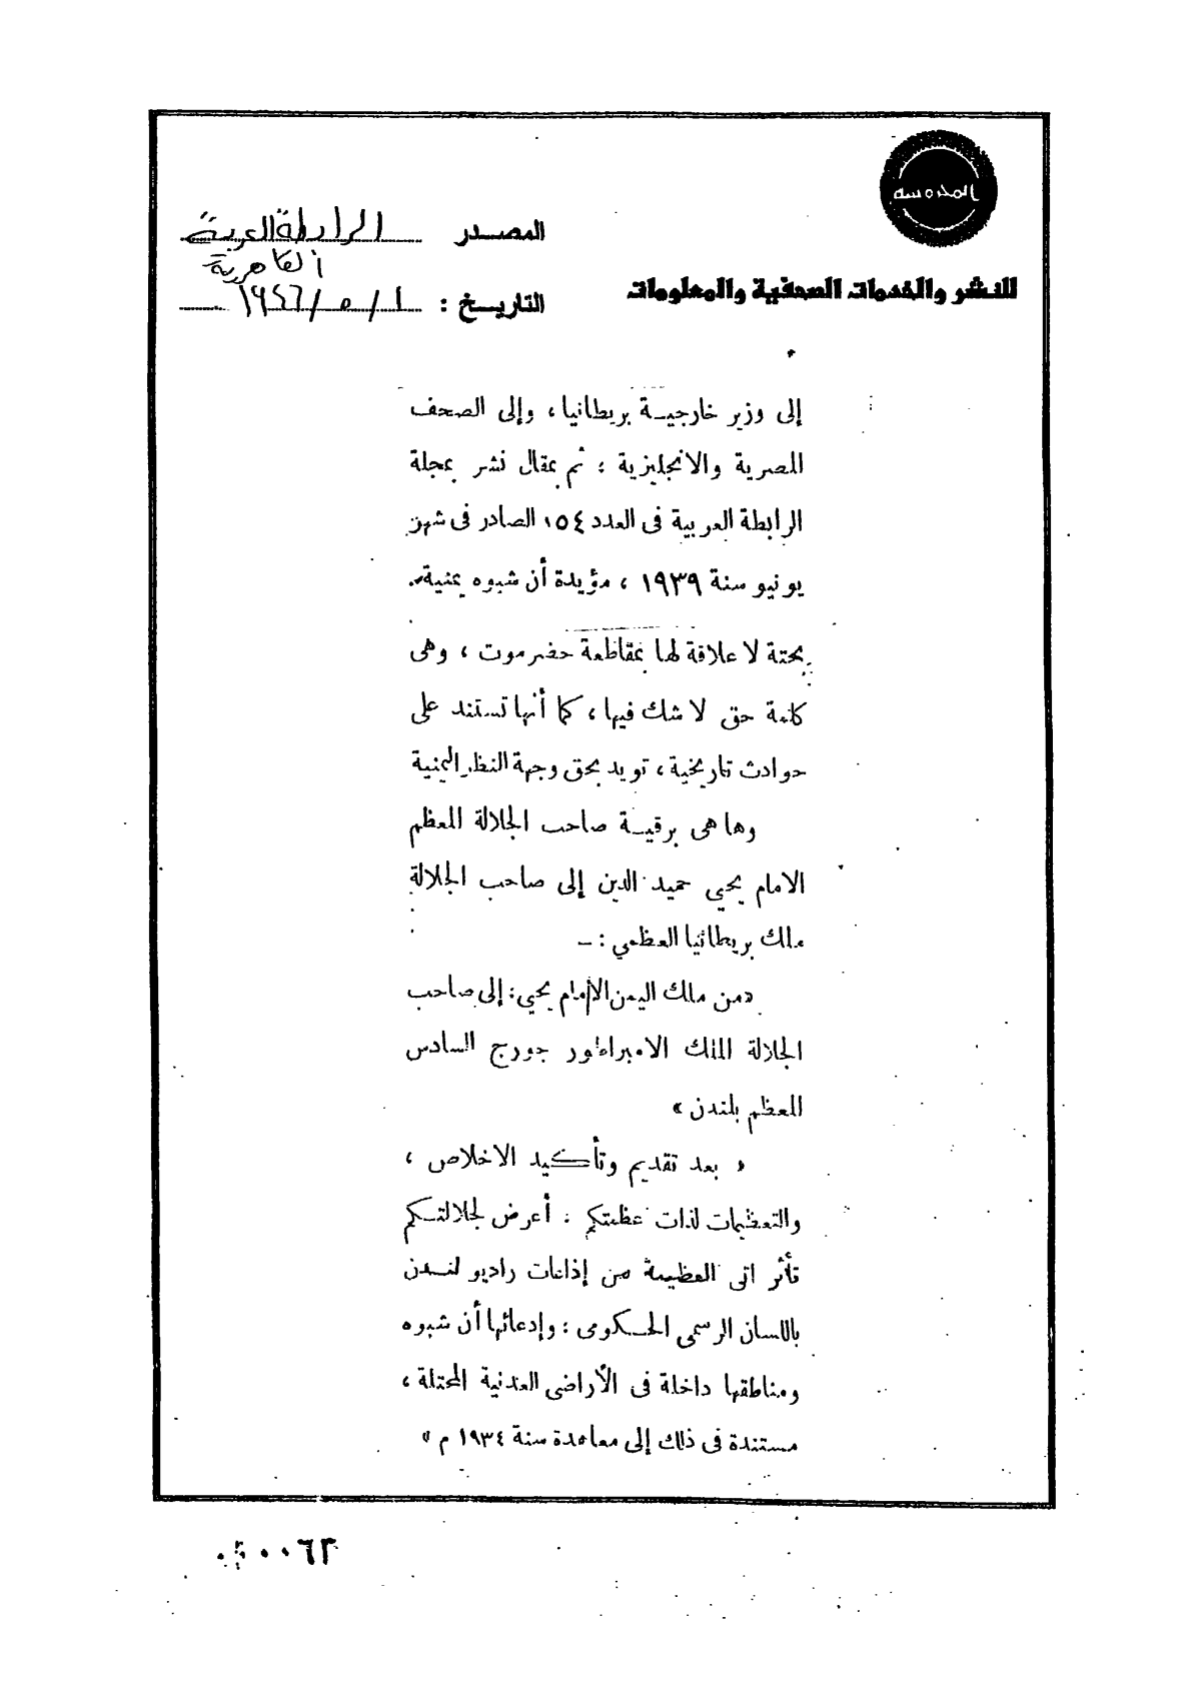 المحروسة
المصدر الرابطة العربية
القاهرية
للنشر والخدمات الصحفية والمعلومات
التاريخ : ١ / ٥ / ١٩٤٦
إلى وزير خارجية بريطانيا ، وإلى الصحف
المصرية والانجليزية : ثم بمقال نشر بمجلة
الرابطة العربية فى العدد ١٥٤ الصادر فى شهر
يونيو سنة ١٩٣٩ ، مؤيدة أن شبوه يمنية
بحتة لا علاقة لها بمقاطعة حضرموت ، وهى
كلمة حق لا شك فيها ، كما أنها تستند على
حوادث تاريخية ، تويد بحق وجهة النظر اليمنية
وها هى برقية صاحب الجلالة المعظم
الامام يحيى حميد الدين إلى صاحب الجلالة
ملك بريطانيا العظمى : –
« من ملك اليمن الإمام يحيى : إلى صاحب
الجلالة الملك الامبراطور جورج السادس
المعظم بلندن »
« بعد تقديم وتأكيد الاخلاص ،
والتعظيمات لذات عظمتكم : أعرض لجلالتكم
تأثر اتى العظيمة من إذاعات راديو لندن
باللسان الرسمى الحكومى : وإدعائها أن شبوه
ومناطقها داخلة فى الأراضى العدنية المحتلة ،
مستندة فى ذلك إلى معاهدة سنة ١٩٣٤ م »